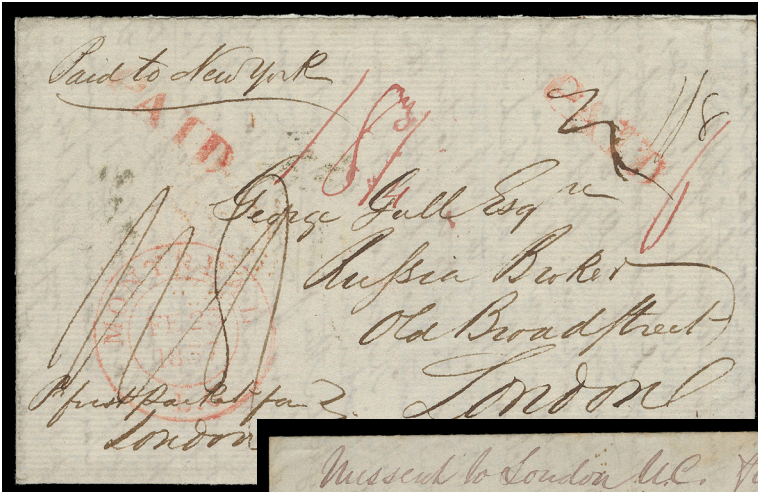 Paid to New York
PAID
PAID
1/8
George Gull Esqre
Russia Broker
Old Broad Street
London
MONTREAL
FE
18
Pr first packet for
London
Missent to London U.C.